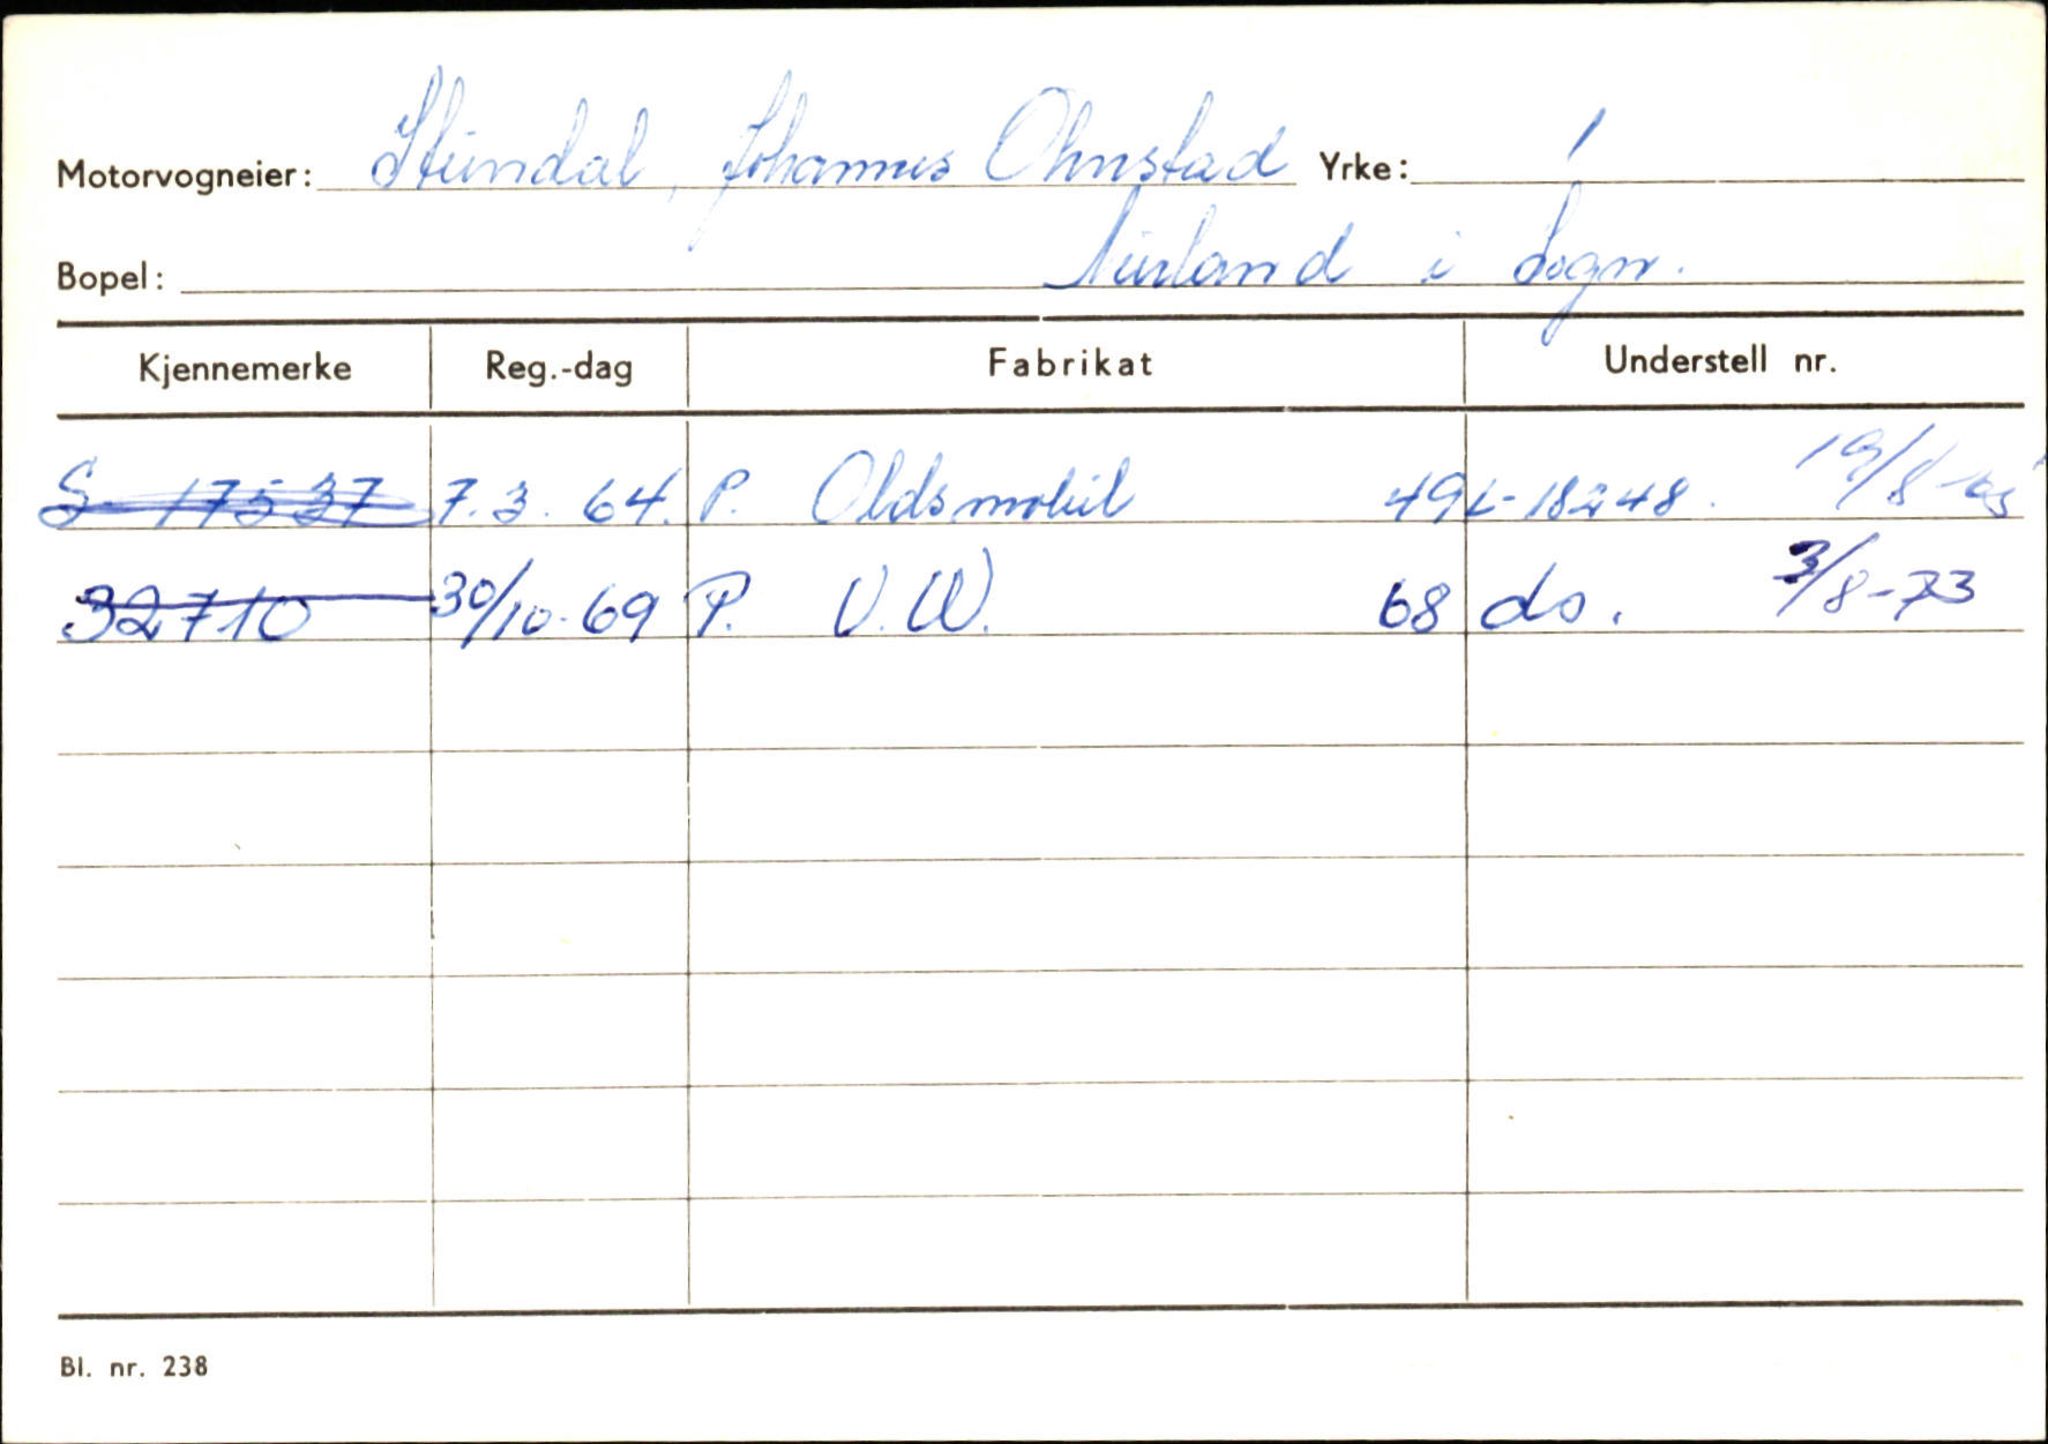 Motorvogneier: Steindal, Johannes Ohnstad Yrke:
Bopel: Aurland i Sogn.
Kjennemerke Reg.-dag Fabrikat Understell nr.
S- 17537 7.3. 64. P. Oldsmobil 49L-18248. 19/8-65
32710 30/10-69 P. V.W. 68 ds. 3/8-73
Bl. nr. 238